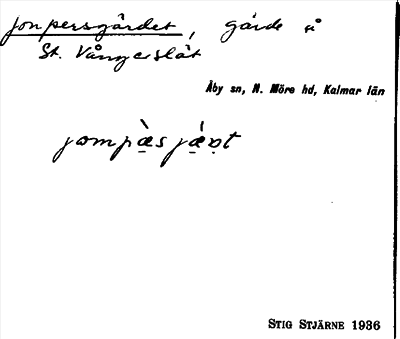 Jonpersgärdet, gärde å
St. Vångerslät
Åby sn, N. Möre hd, Kalmar län
STIG STJÄRNE 1936